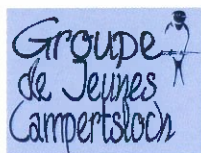 Groupe
de Jeunes
Lampertsloch